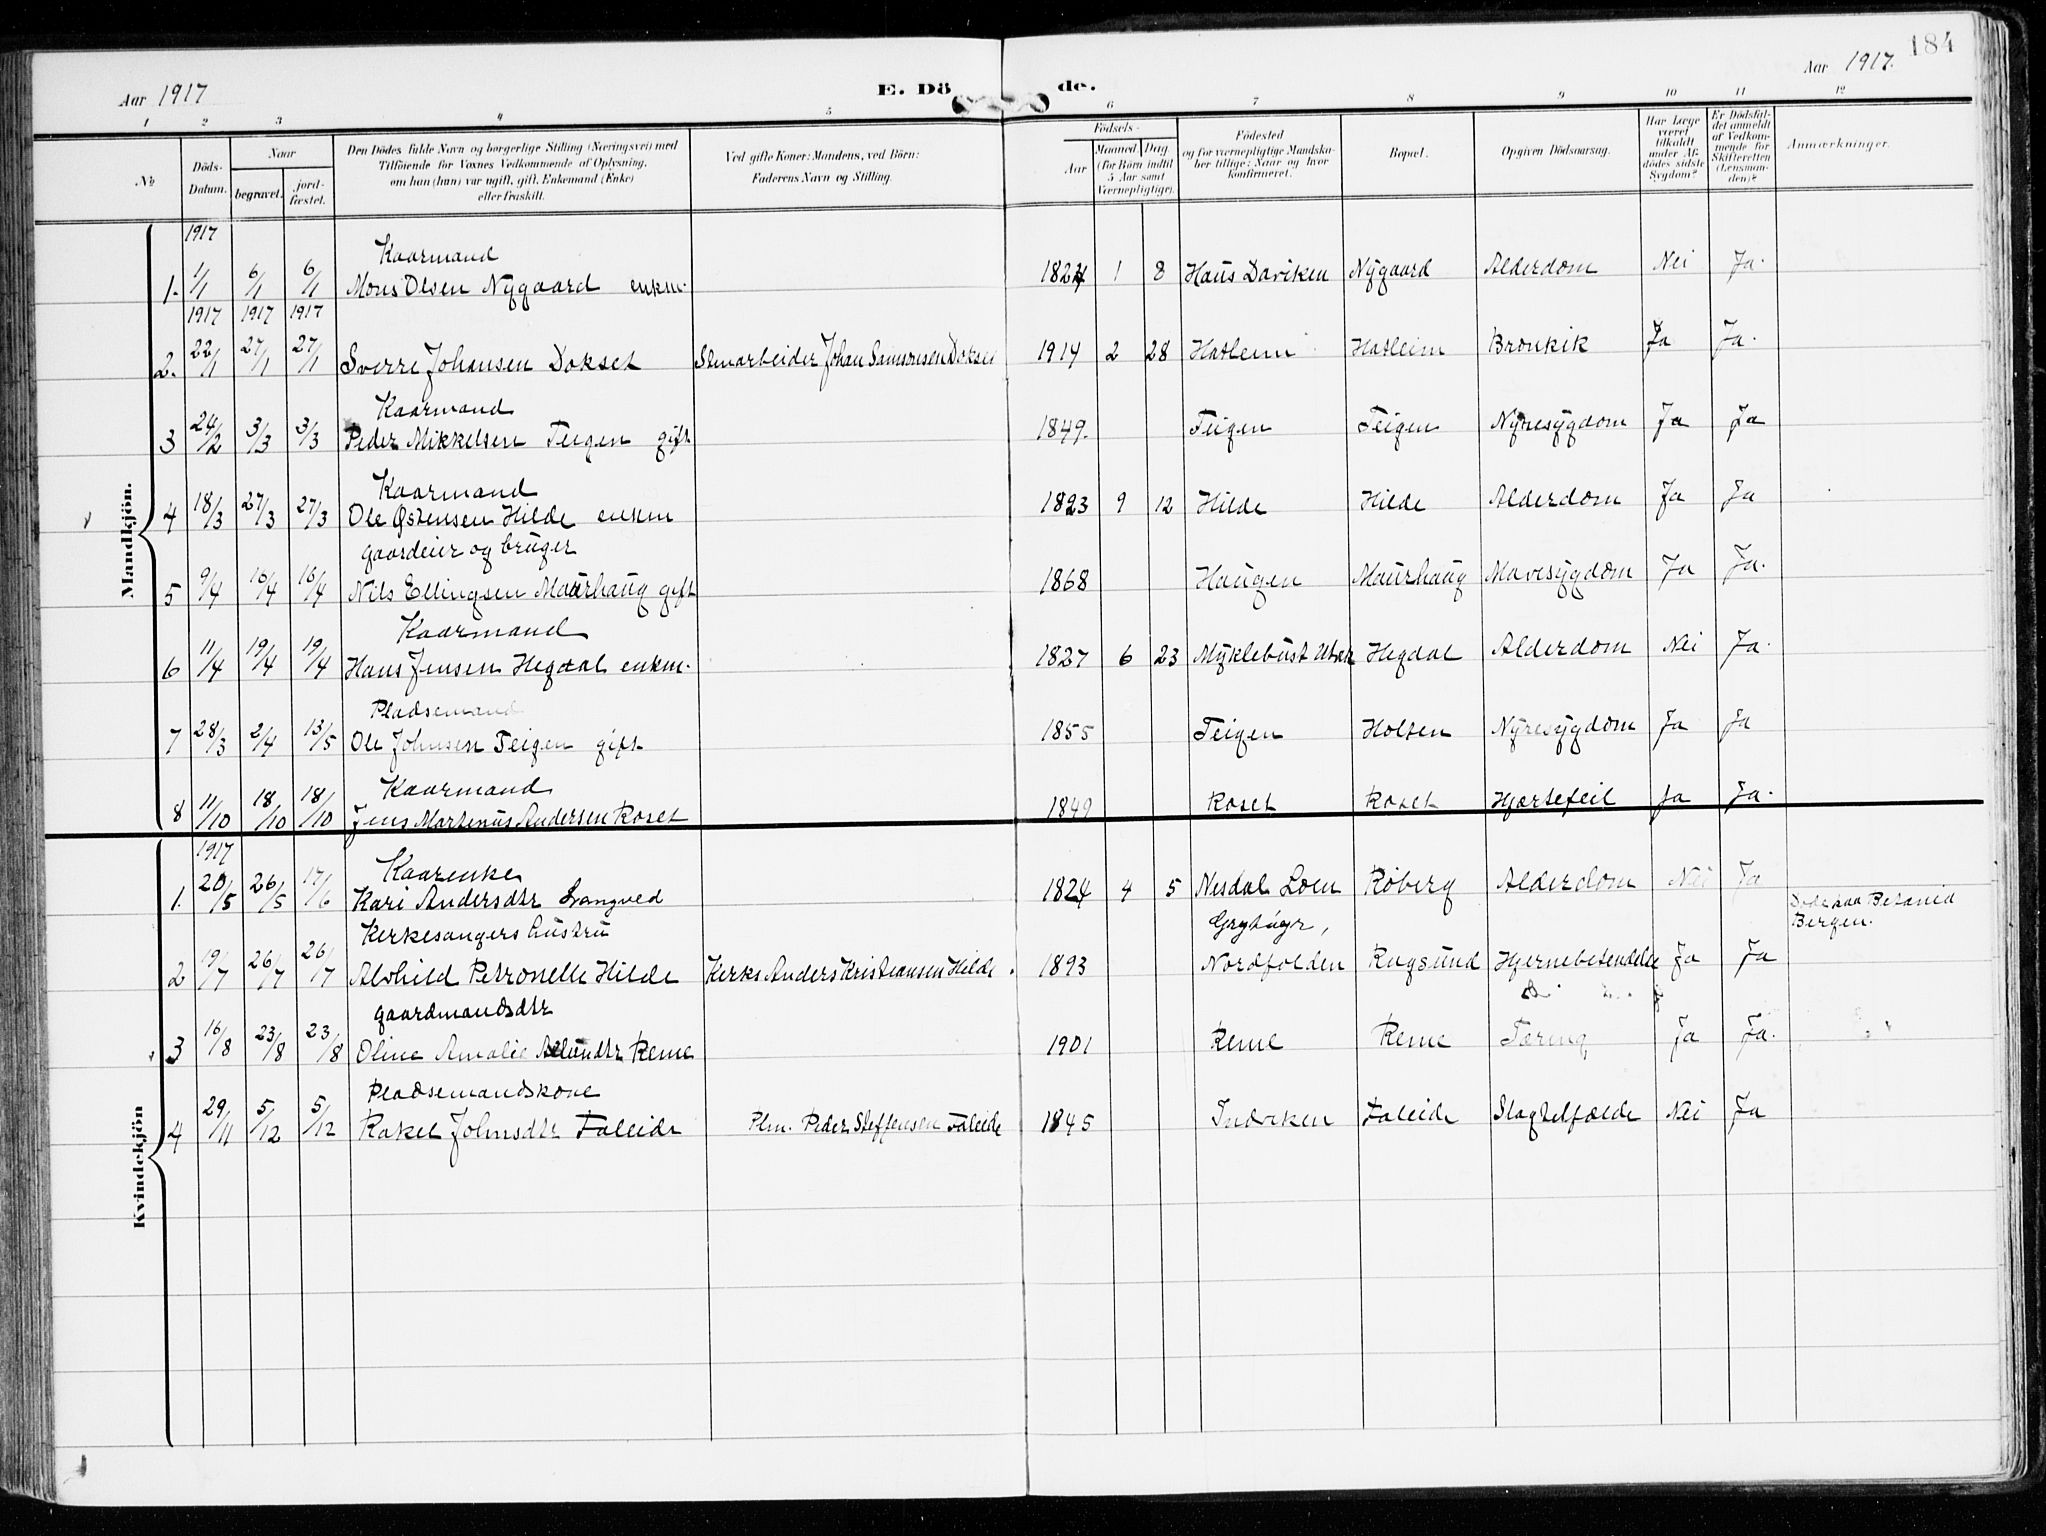 184
Aar 1917
E. Döde.
Aar 1917.
1 2 3 4 5 6 7 8 9 10 11 12
№
Döds-Datum.
Naar
begravet.
jord-fæstet.
Den Dödes fulde Navn og borgerlige Stilling (Næringsvei) med
Tilföiende for Voxnes Vedkommende af Oplysning,
om han (hun) var ugift, gift, Enkemand (Enke)
eller fraskilt.
Ved gifte Koner: Mandens, ved Börn:
Faderens Navn og Stilling.
Födsels-
Aar
Maaned. Dag.
(for Börn indtil
5 Aar samt
Værnepligtige).
Födested
og for værnepligtige Mandska-
ber tillige: Naar og hvor
konfirmeret.
Bopæl.
Opgiven Dödsaarsag.
Har Læge
været
tilkaldt
under Af-
dödes sidste
Sygdom?
Er Dödsfal-
det anmeldt
af Vedkom-
mende for
Skifteretten
(Lensman-
den)?
Anmærkninger.
Mandkjön.
1917
Kaarmand
1. 1/1 6/1 6/1 Mons Olsen Nygaard enkm. 1824 1 8 Haus Daviken Nygaard Alderdom Nei Ja.
1917 1917 1917
2. 22/1 27/1 27/1 Sverre Johansen Dokset Stenarbeider Johan Samsonsen Dokset 1914 2 28 Hatleim Hatleim Bronkik Ja Ja.
Kaarmand
3 24/2 3/3 3/3 Peder Mikkelsen Teigen gift 1849. Teigen Teigen Nyresygdom Ja Ja
Kaarmand
4 18/3 27/3 27/3 Ole Østensen Hilde enkm 1823 9 12 Hilde Hilde Alderdom Ja Ja
gaardeier og bruger
5 9/4 16/4 16/4 Nils Ellingsen Maurhaug gift 1868 Haugen Maurhaug Mavesygdom Ja Ja.
Kaarmand
6 11/4 19/4 19/4 Hans Jensen Hegdal enkm. 1827 6 23 Myklebust Hegdal Alderdom Nei Ja.
Pladsemand
7 28/3 2/4 13/5 Ole Johnsen Teigen gift 1855 Teigen Holsen Nyresygdom Ja Ja
Kaarmand
8 11/10 18/10 18/10 Jens Martinus Andersen Roset 1849 Roset Roset Hjertefeil Ja Ja.
Kvindekjön
1917
Kaarenke
1. 20/5 26/5 17/6 Kari Andersdtr Langved 1824 4 5 Nesdal Loen Röberg Alderdom Nei Ja
Kerkesangers hustru
Betania
Bergen.
2 19/7 26/7 26/7 Alvhild Petronelle Hilde Kerks Anders Kristiansen Hilde. 1893 Nordfolden Rugsund Hjernebetendelse Ja Ja
gaardmandsdtr
3 16/8 23/8 23/8 Oline Amalie Reme 1901 Reme Reme Tæring Ja Ja.
Pladsemandskone
4 29/11 5/12 5/12 Rakel Johnsdtr Faleide Plm. Peder Steffensen Faleide 1845 Indviken Faleide Slagtilfælde Nei Ja